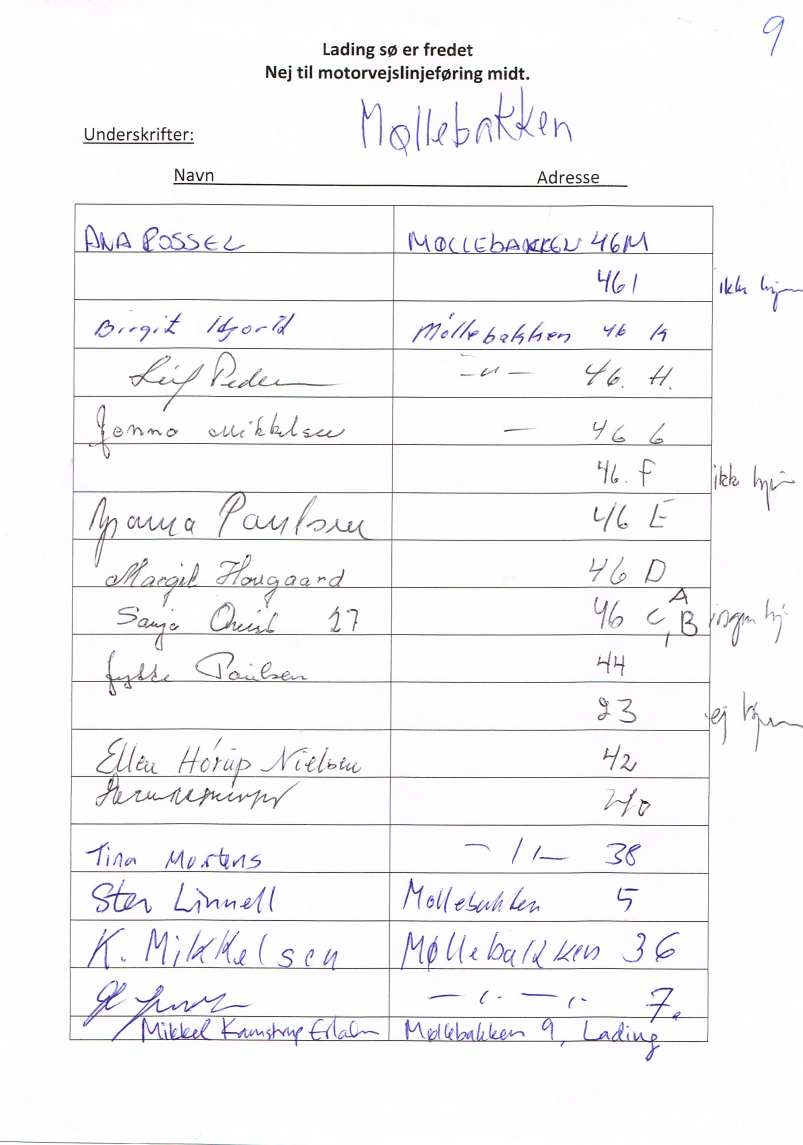 9
Lading sø er fredet
Nej til motorvejslinjeføring midt.
Møllebakken
Underskrifter:
Navn Adresse
ANA POSSEL MØLLEBAKKEN 46M
46I ikke hjem
Birgit Møllebakken 46 K
Leif Peder — " — 46. H.
Jonna Mikkelsen — 46 G
46. F ikke hjem
Paulsen 46 E
Margit Hougaard 46 D
Sanja Qvist 27 46 C, B A ingen hj
Jytte Paulsen 44
23 ej hjem
Ellen Hörup Nielsen 42
40
Tina Mortens — 11 — 38
Sten Linnell Møllebakken 5
K. Mikkelsen Møllebakken 36
— " — 7.
Mikkel Kamstrup Møllebakken 9, Lading